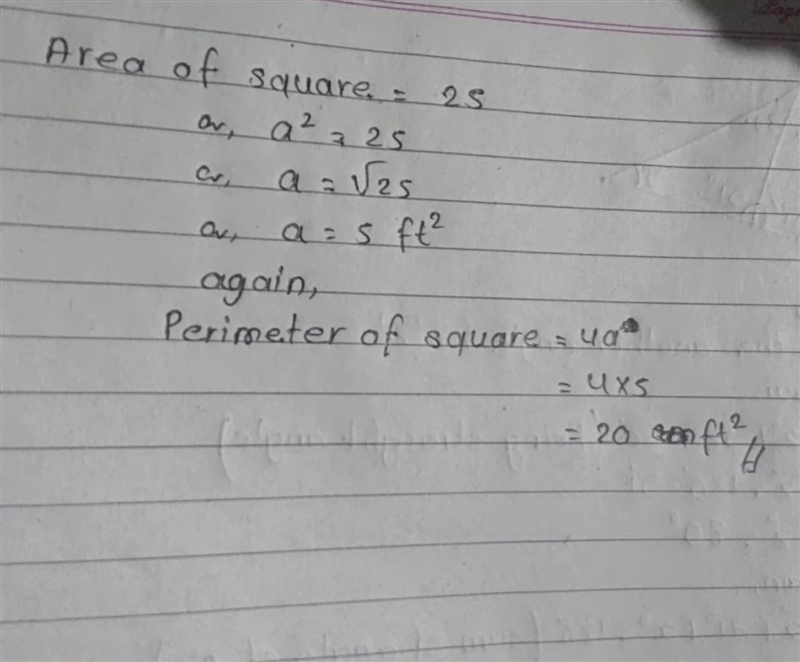 Area of square = 25
or, a² = 25
or, a = √25
or, a = 5 ft²
again,
Perimeter of square = 4a
= 4×5
= 20 ft²